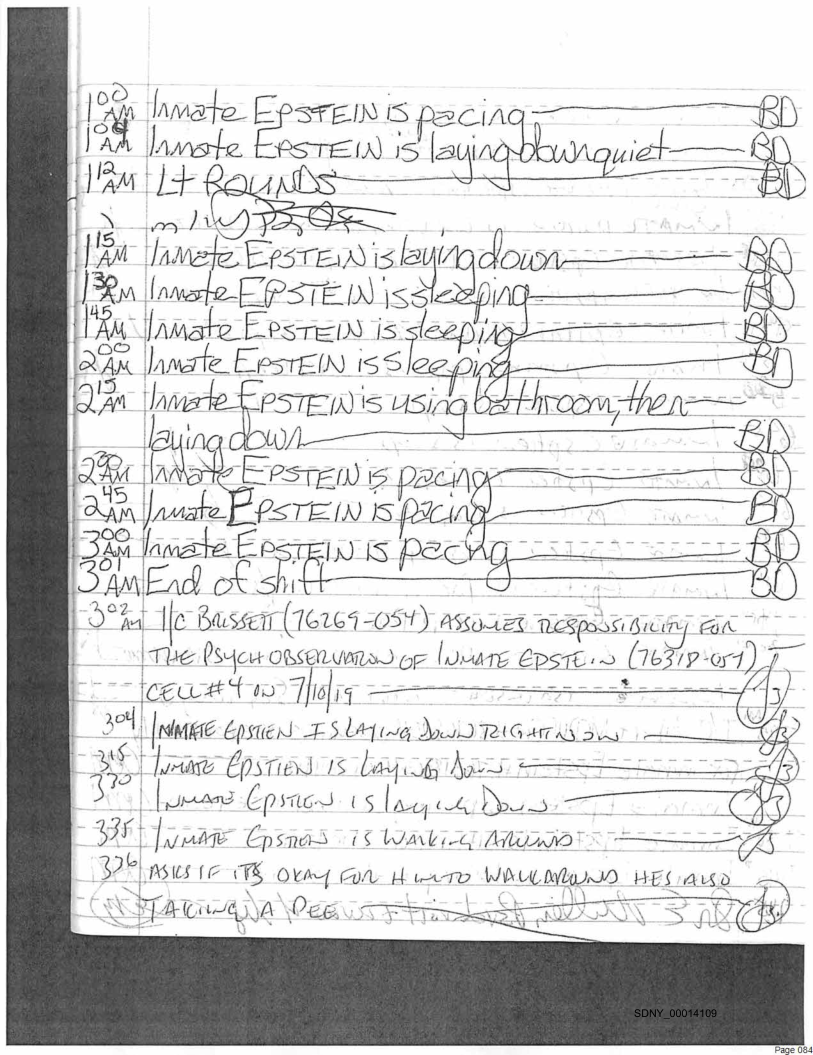 1 00 AM Inmate EPSTEIN is pacing BD
1 04 AM Inmate EPSTEIN is laying down quiet BD
1 12 AM Lt ROUNDS BD
1 15 AM Inmate EPSTEIN is laying down BD
1 30 AM Inmate EPSTEIN is sleeping BD
1 45 AM Inmate EPSTEIN is sleeping BD
2 00 AM Inmate EPSTEIN is sleeping BD
2 15 AM Inmate EPSTEIN is using bathroom, then
laying down BD
2 30 AM Inmate EPSTEIN is pacing BD
2 45 AM Inmate EPSTEIN is pacing BD
3 00 AM Inmate EPSTEIN is pacing BD
3 01 AM End of shift BD
3 02 AM I/C BRISSETT (76269-054) ASSUMES RESPONSIBILITY FOR
THE PSYCH OBSERVATION OF INMATE EPSTEIN (76318-054)
CELL #4 ON 7/10/19
304 INMATE EPSTIEN IS LAYING DOWN RIGHT NOW
315 INMATE EPSTIEN IS LAYING DOWN
330 INMATE EPSTIEN IS laying DOWN
335 INMATE EPSTIEN IS WALKING AROUND
336 ASKS IF ITS OKAY FOR HIM TO WALK AROUND HES ALSO
TAKING A PEE
SDNY_00014109
Page 084